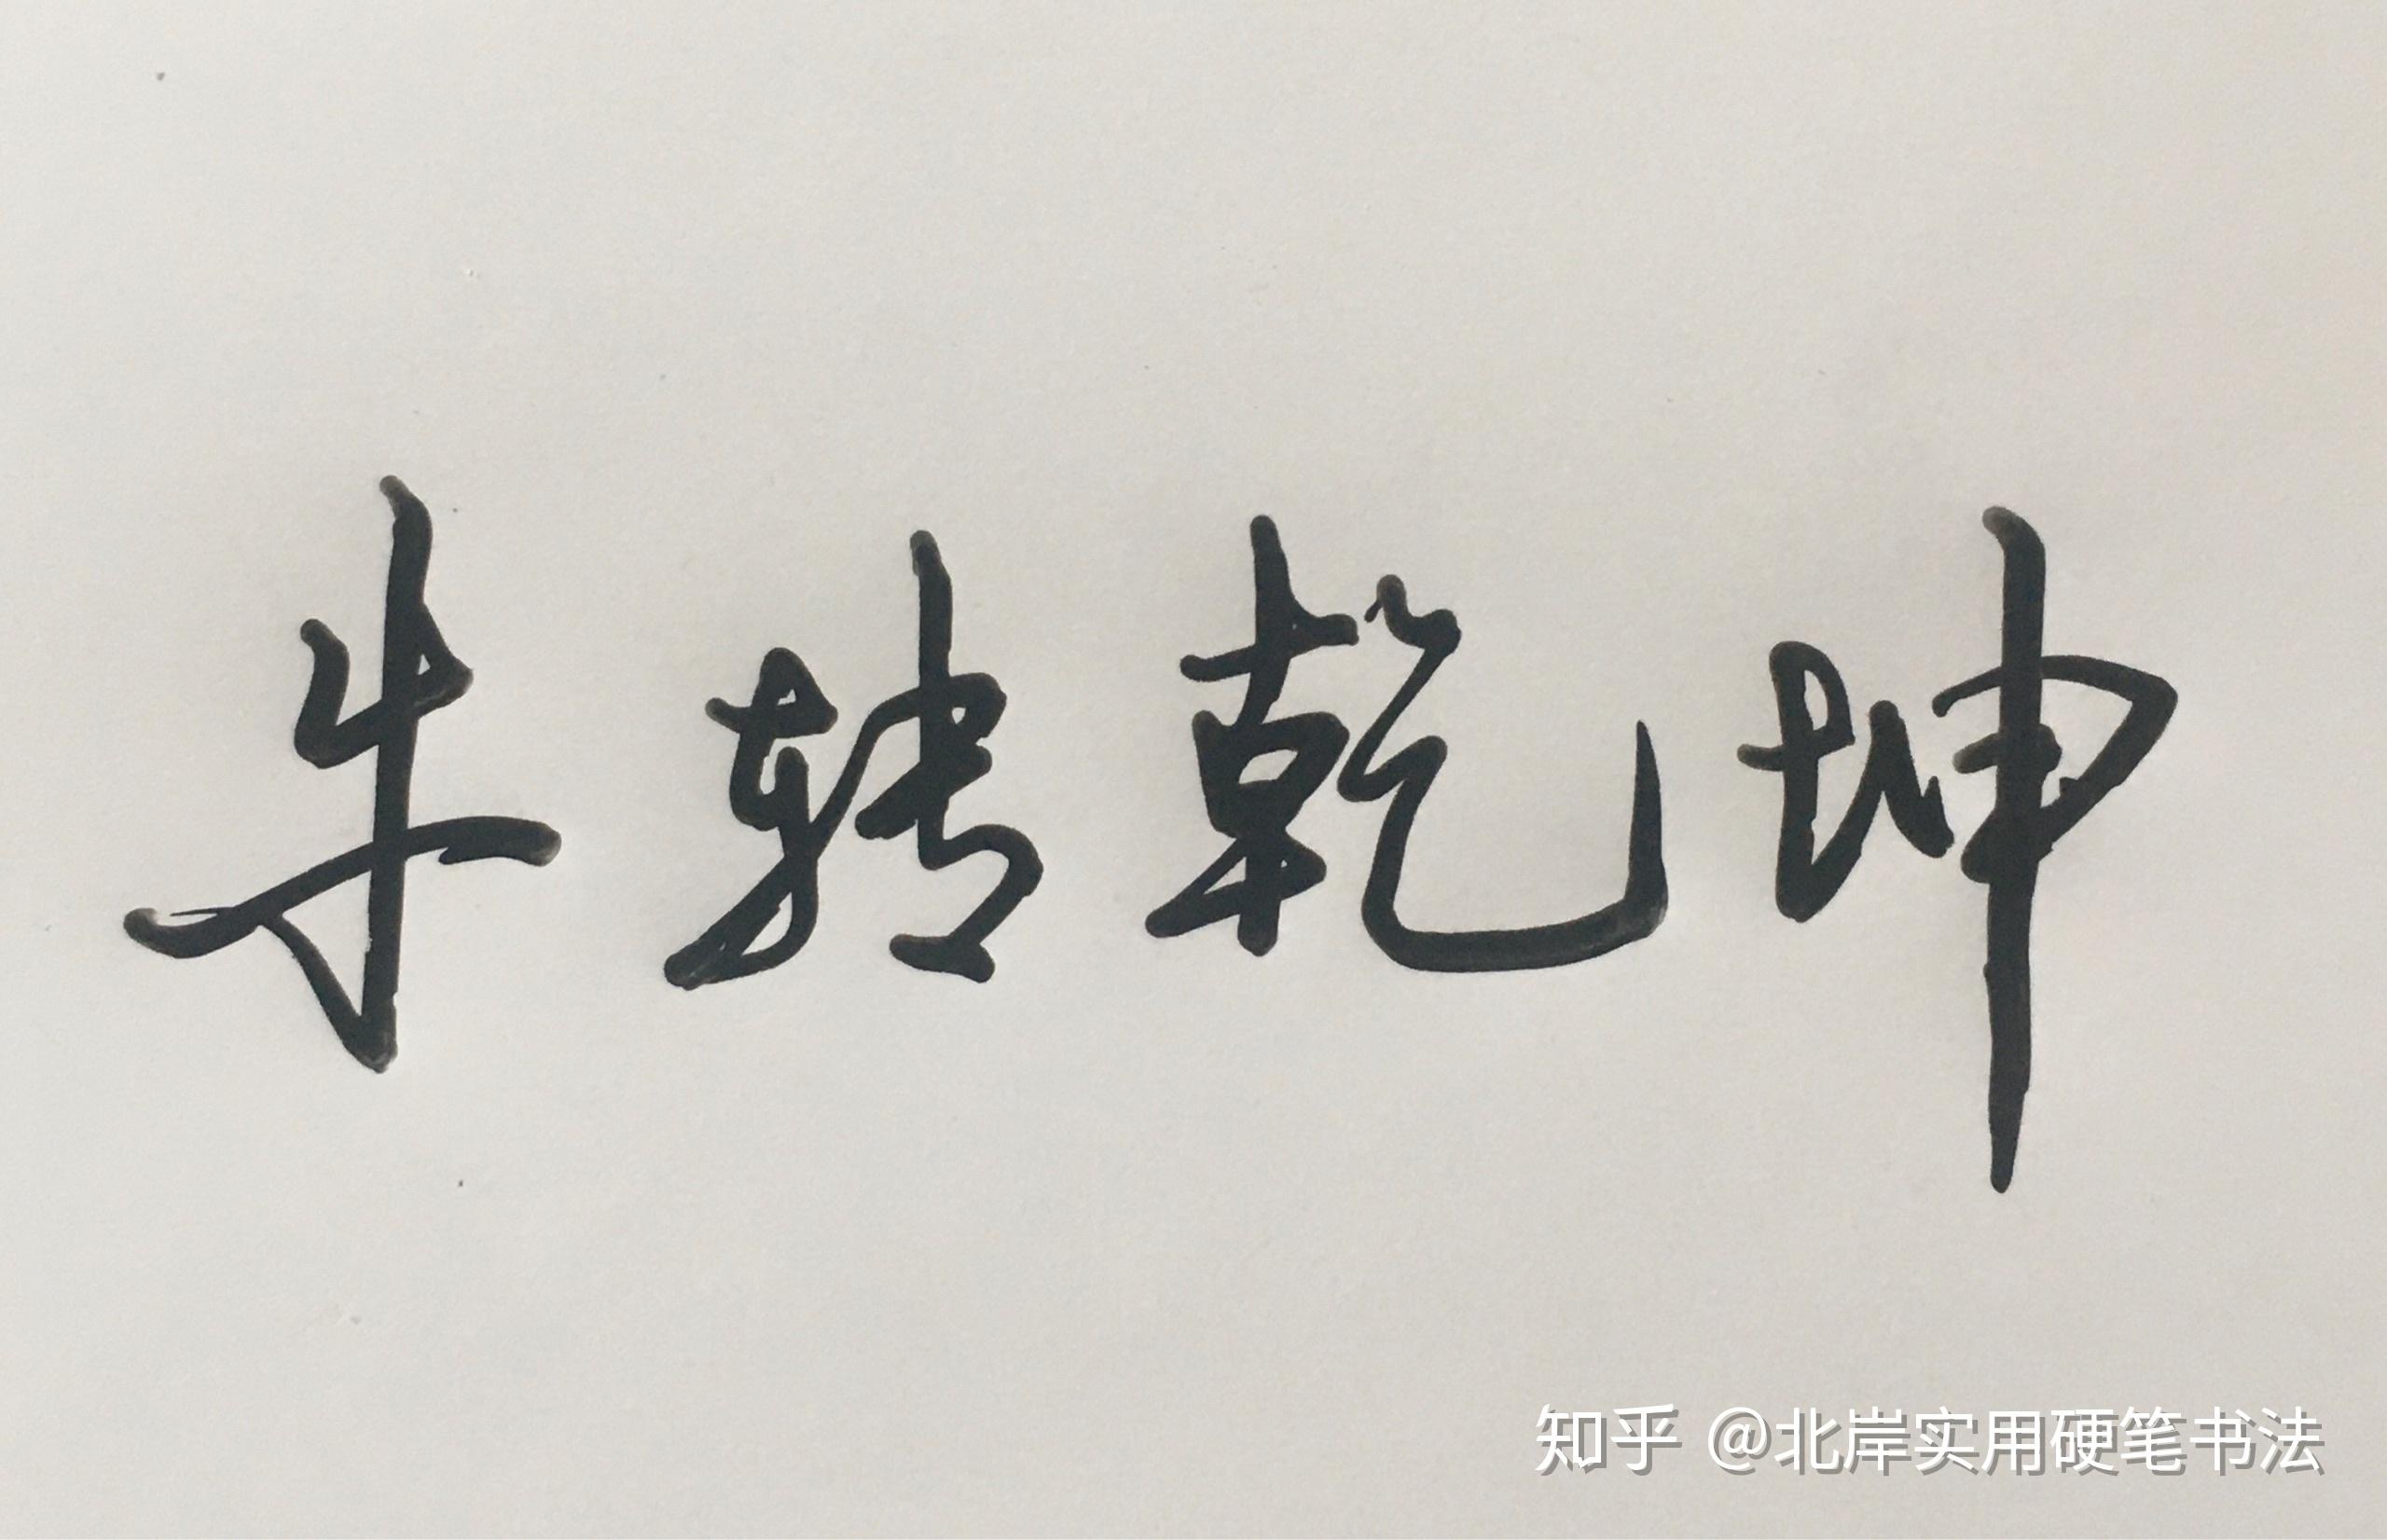 牛转乾坤
知乎 @北岸实用硬笔书法